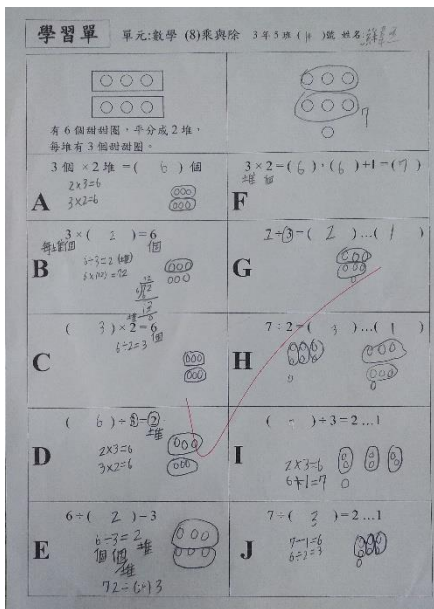 學習單 單元:數學 (8)乘與除 3年5班( )號 姓名
7
有6個甜甜圈,平分成2堆,
每堆有3個甜甜圈。
3個 ×2堆 =( 6 )個
2×3=6
3×2=6
A
3×2=(6),(6)+1=(7)
堆 個
F
3×( 2 )=6
個
6÷3=2(堆)
B
7÷3=( 2 )…( 1 )
G
( 3 )×2=6
個
6÷2=3
C
7÷2=( 3 )…( 1 )
H
( 6 )÷3=2
堆
2×3=6
3×2=6
D
( )÷3=2…1
2×3=6
6+1=7
I
6÷( 2 )=3
6÷3=2
個 個 堆
E
7÷( 3 )=2…1
7-1=6
6÷2=3
J